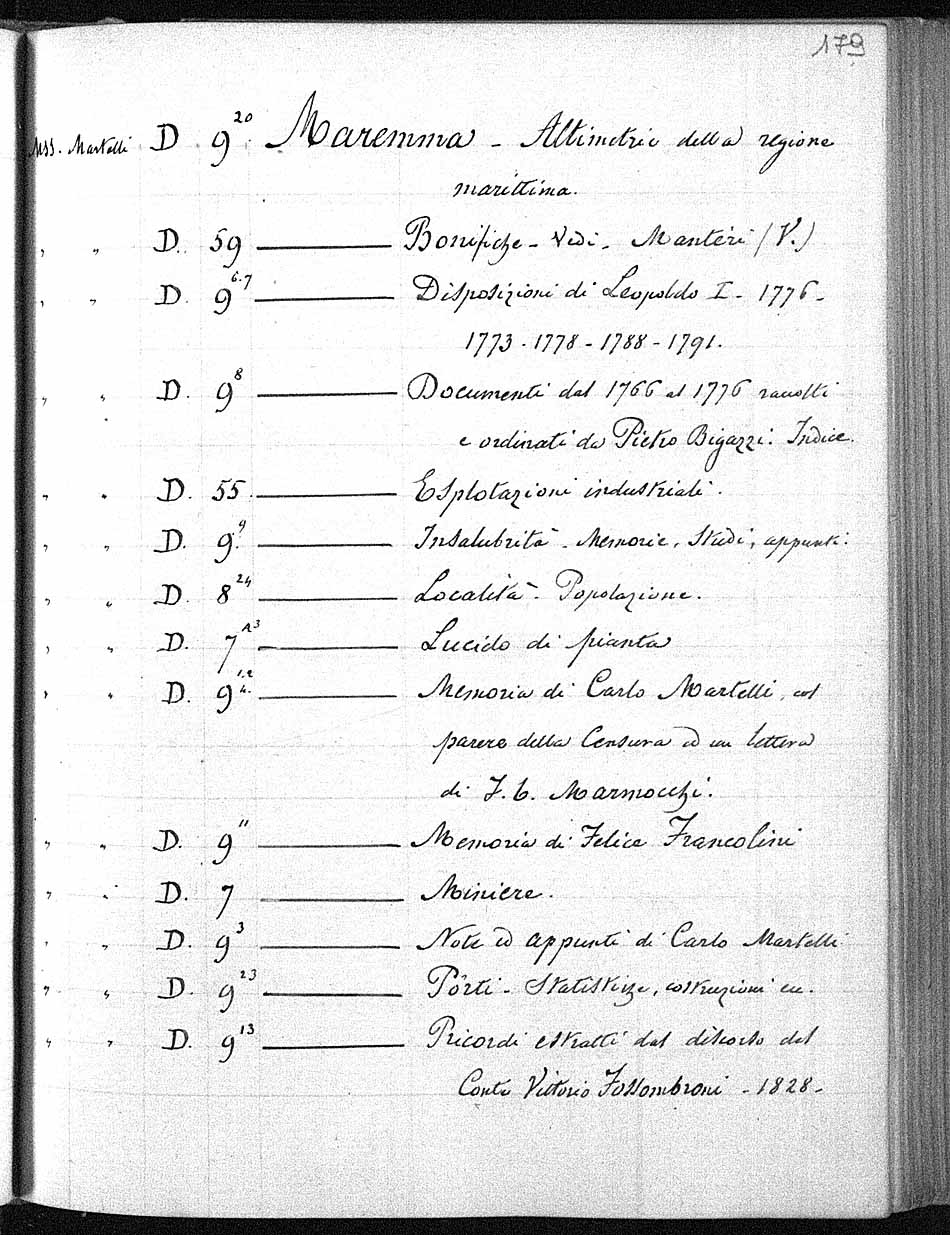 179
Mss. Martelli D 9²⁰ Maremma - Altimetrie della regione
marittima.
" " D. 59 ——— Bonifiche - Vedi - Mantéri (V.)
" " D. 9⁶·⁷ ——— Disposizioni di Leopoldo I - 1776 -
1773 - 1778 - 1788 - 1791.
" " D. 9⁸ ——— Documenti dal 1766 al 1776 raccolti
e ordinati da Pietro Bigazzi. Indice.
" " D. 55. ——— Esplotazioni industriali.
" " D. 9⁹. ——— Insalubrità - Memorie, Studi, appunti.
" " D. 8²⁴ ——— Località - Popolazione.
" " D. 7 ——— Lucido di pianta
" " D. 9¹·²·⁴· ——— Memoria di Carlo Martelli, col
parere della Censura ed una lettera
di F. C. Marmocchi.
" " D. 9¹¹ ——— Memoria di Felice Francolini
" " D. 7 ——— Miniere.
" " D. 9³ ——— Note ed appunti di Carlo Martelli
" " D. 9²³ ——— Porti - Statistiche, costruzioni ec.
" " D. 9¹³ ——— Ricordi estratti dal discorso del
Conte Vittorio Fossombroni - 1828 -